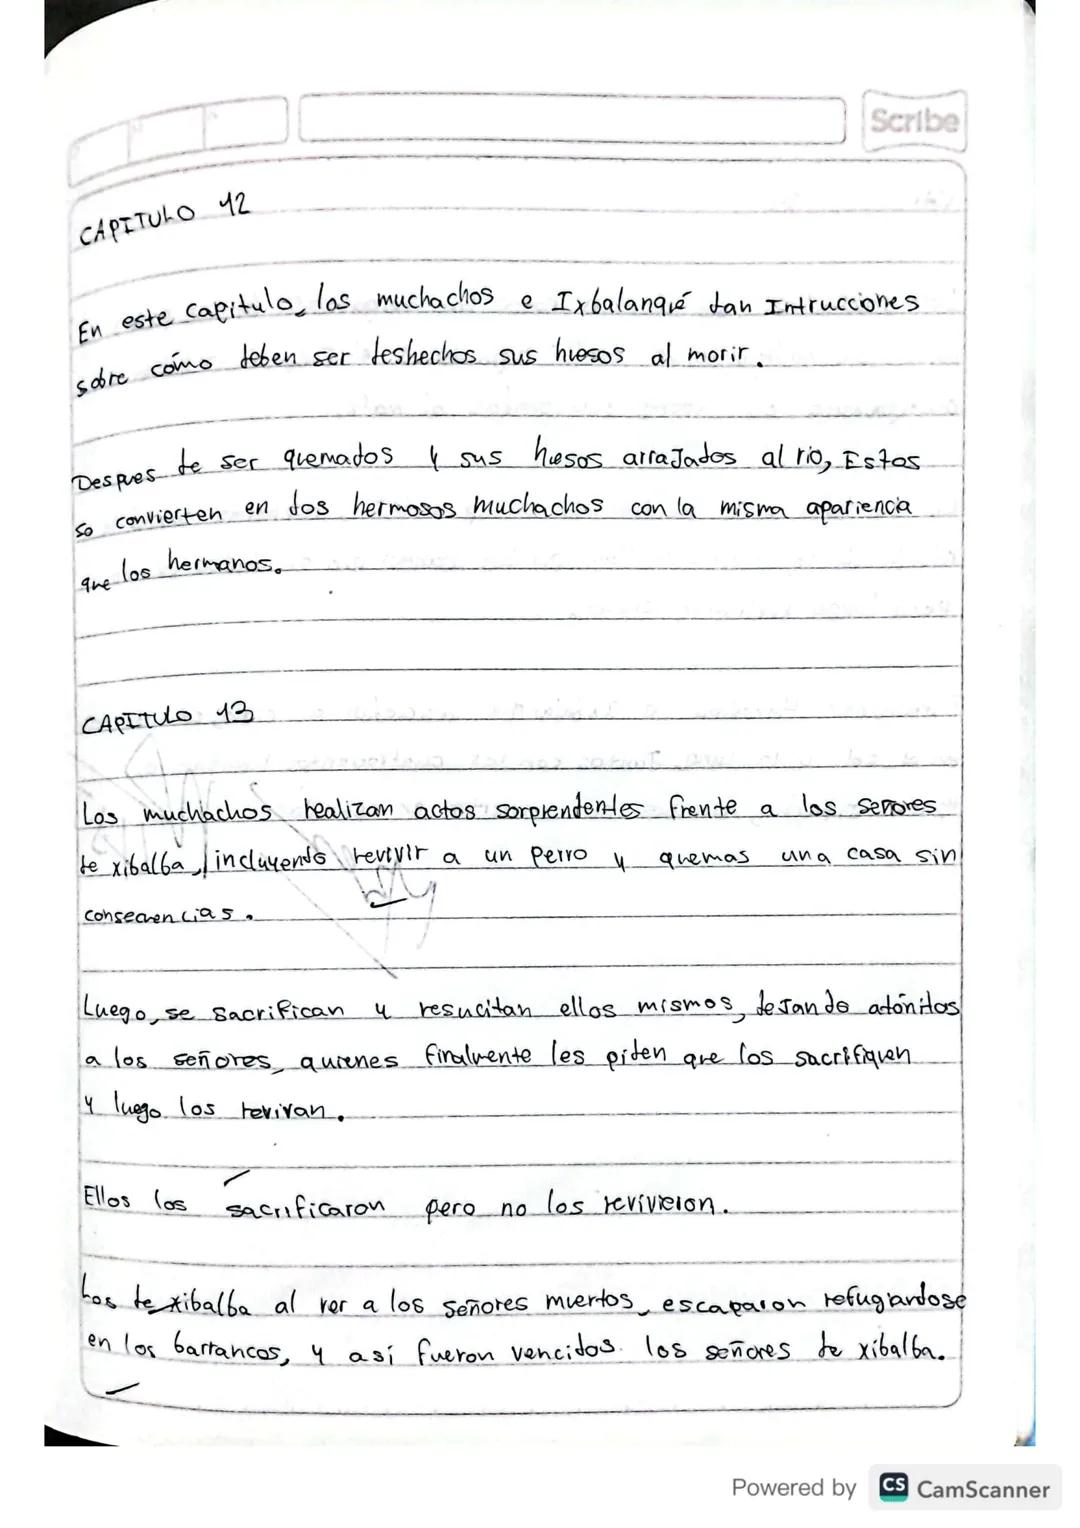 Scribe
CAPITULO 12
En este capitulo, los muchachos e Ixbalanqué dan Intrucciones
sobre cómo deben ser deshechos sus huesos al morir.
Despues de ser quemados y sus huesos arraJados al rio, Estos
se convierten en dos hermosos muchachos con la misma apariencia
que los hermanos.
CAPITULO 13
Los muchachos realizan actos sorprendentes frente a los señores
de xibalba, incluyendo revivir a un perro y quemas una casa sin
consecuencias.
Luego, se sacrifican y resucitan ellos mismos, deJando atónitos
a los señores, quienes finalmente les piden que los sacrifiquen
y luego los revivan.
Ellos los sacrificaron pero no los revivieron.
Los de xibalba al ver a los señores muertos, escaparon refugiandose
en los barrancos, y así fueron vencidos los señores de xibalba.
Powered by CS CamScanner